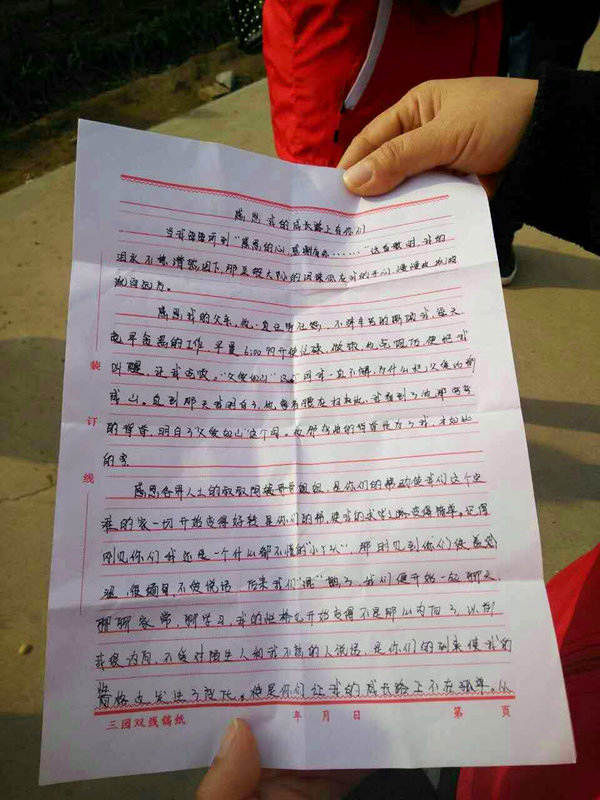 感恩我的成长路上有你们
当我每每听到“感恩的心,感谢有你……”这首歌时,我的
泪水不禁潸然泪下,那豆般大小的泪珠低在我的手心,慢慢地
流向远方。
感恩我的父亲,他一直任劳任怨,不辞辛苦的照顾我,每天
起早贪黑的工作,早晨6:00多开始忙碌,做饭,他先做饭,便把我
叫醒,让我吃饭。“父爱如山”这个词我一直不解为什么把父爱比喻
成山。直到那天我明白了,他每,我看到了他那
的背脊,明白了“父爱如山”这个词。他那背脊是为了我,才如此
的弯
装
订
线
感恩各界人士的叔叔阿姨哥哥姐姐,是你们的帮助使我们这个贫
难的家一切开始变得好转是你们的帮,使我的求学之路变得简单。记得
刚见你们我还是一个什么都不懂的“小丫头”,那时见到你们很羞涩
涩,很腼腆不爱说话,后来我们“混”熟了,我们便开始一起聊天,
聊聊家常,聊学习,我的性格也开始变得不是那么内向了,以前
我很内向,不爱对陌生人和我不熟的人说话,是你们的到来使我的
性格也发生了变化。也是你们让我的成长路上不在孤单。从
三园双线稿纸 年 月 日 第 页